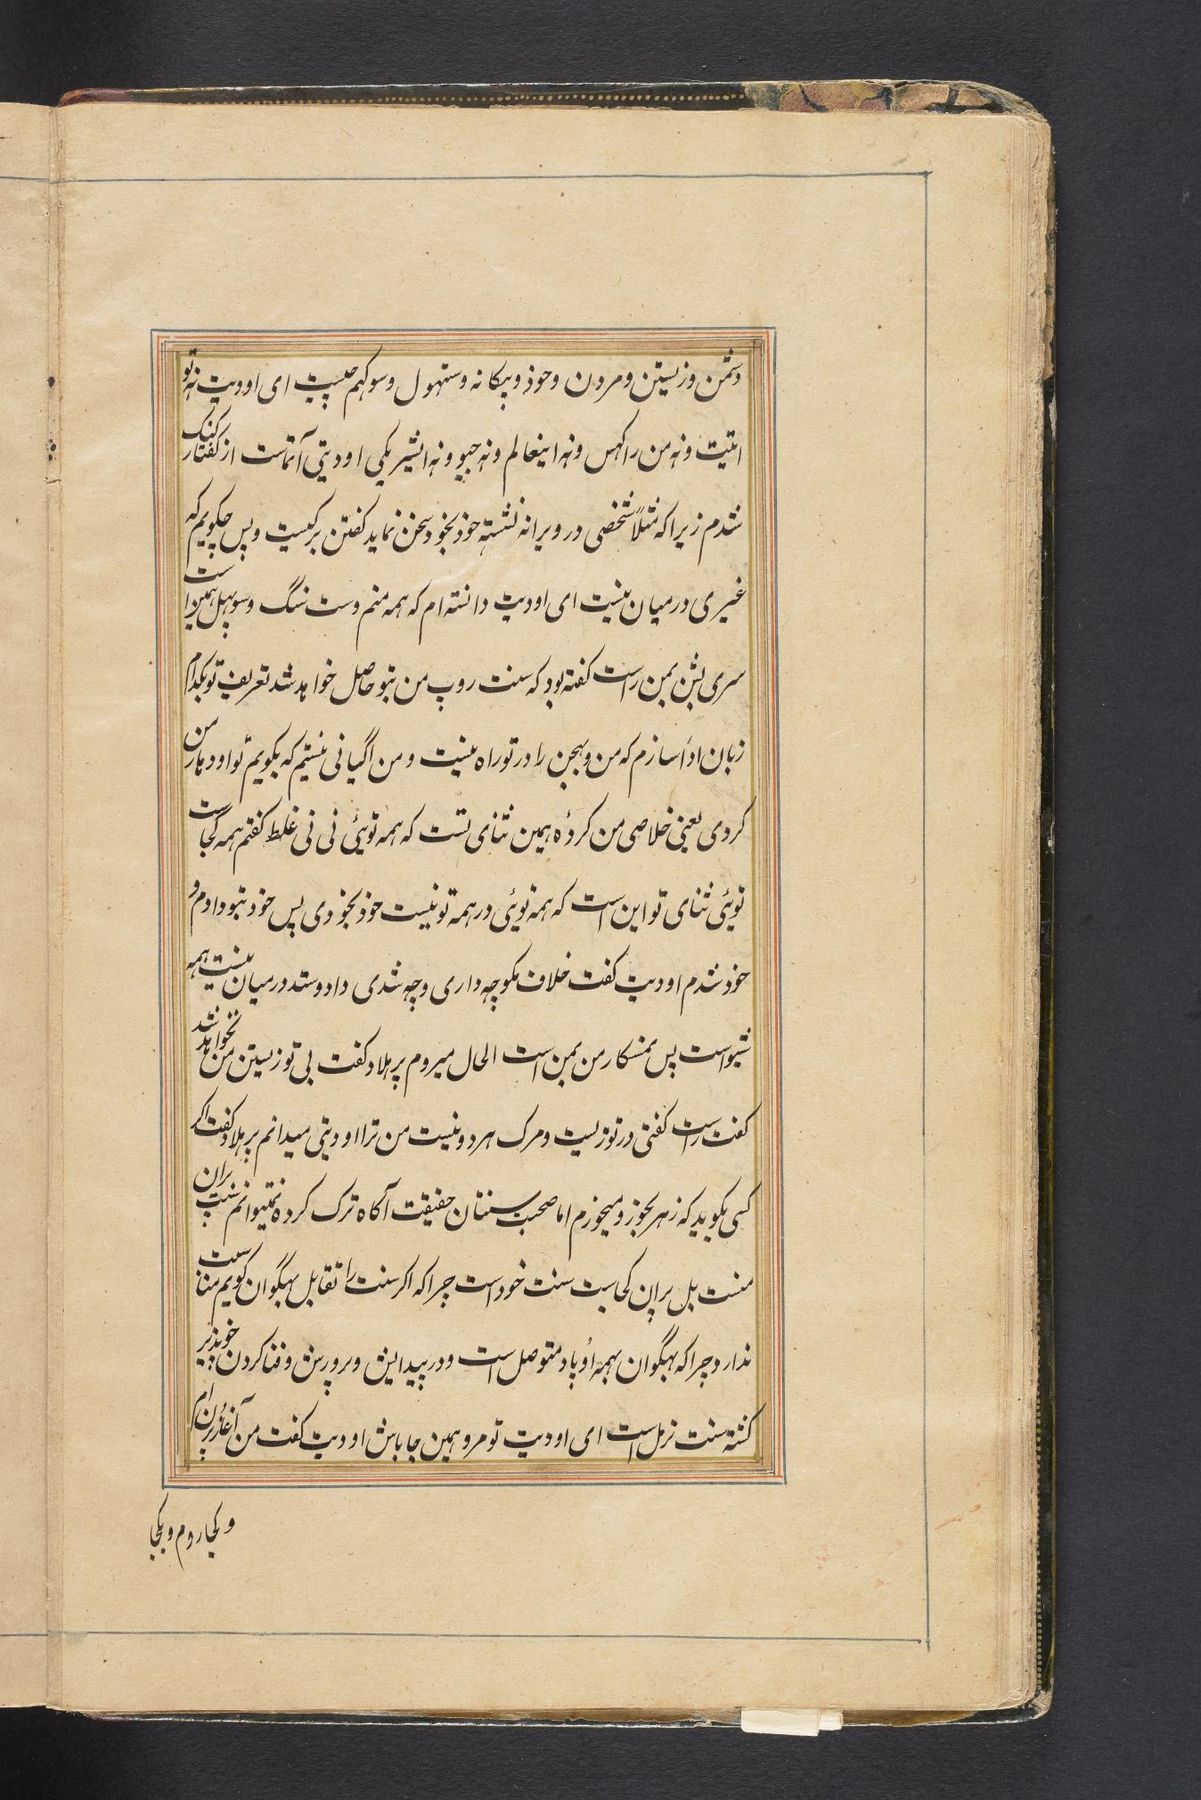 دشمن و زیستن و مردن و خود و بیکانه و ستهول و سوکهم چیست ای اودیت نه تو
اتیت و نه من راکهس و نه اینعالم و نه جیو و نه ایشر یکی اودیتی آتماست از کفتار کنک
شدم زیراکه مثلاً شخصی در ویرانه نشسته خود بخود سخن نماید کفتن برکیست و پس چکویم که
غیری درمیان نیست ای اودیت دانسته ام که همه منم وست سنگ و سوپهل همین است
سری بشن بمن راست کفته بود که سنت روپ من بتو حاصل خواهد شد تعریف تو بکدام
زبان ادا سازم که من و بچن را در تو راه نیست و من اگیانی نیستم که بکویم تو اودهار من
کردی یعنی خلاصی من کردهٔ همین ثنای تست که همه توئی نی نی غلط کفتم همه کجاست
توئی ثنای تو این است که همه توئی در همه تو نیست خود بخودی پس خود بتو دادم و
خود شدم اودیت کفت خلاف مکو چه داری و چه شدی داد و ستد درمیان نیست همه
شیو است پس نمسکار من بمن است الحال میروم پرهلاد کفت بی تو زیستن من نخواهد شد
کفت راست کفتی در تو زیست و مرک هر دو نیست من ترا اودیتی میدانم پرهلاد کفت اکر
کسی بکوید که زهر بخور و میخورم اما صحبت سنتان حقیقت آکاه ترک کرده نمیتوانم ست پران
منست بل پران کجاست سنت خود است چراکه اکر سنت را تقابل بهگوان کویم مناست
ندارد چراکه بهگوان بهمه اوپاد متوصل است و در پیدایش و پرورش و فنا کردن خوپذیر
کشته سنت نرمل است ای اودیت تو مرو همین جا باش اودیت کفت من آغاز پران ام
و کجا روم و بکجا